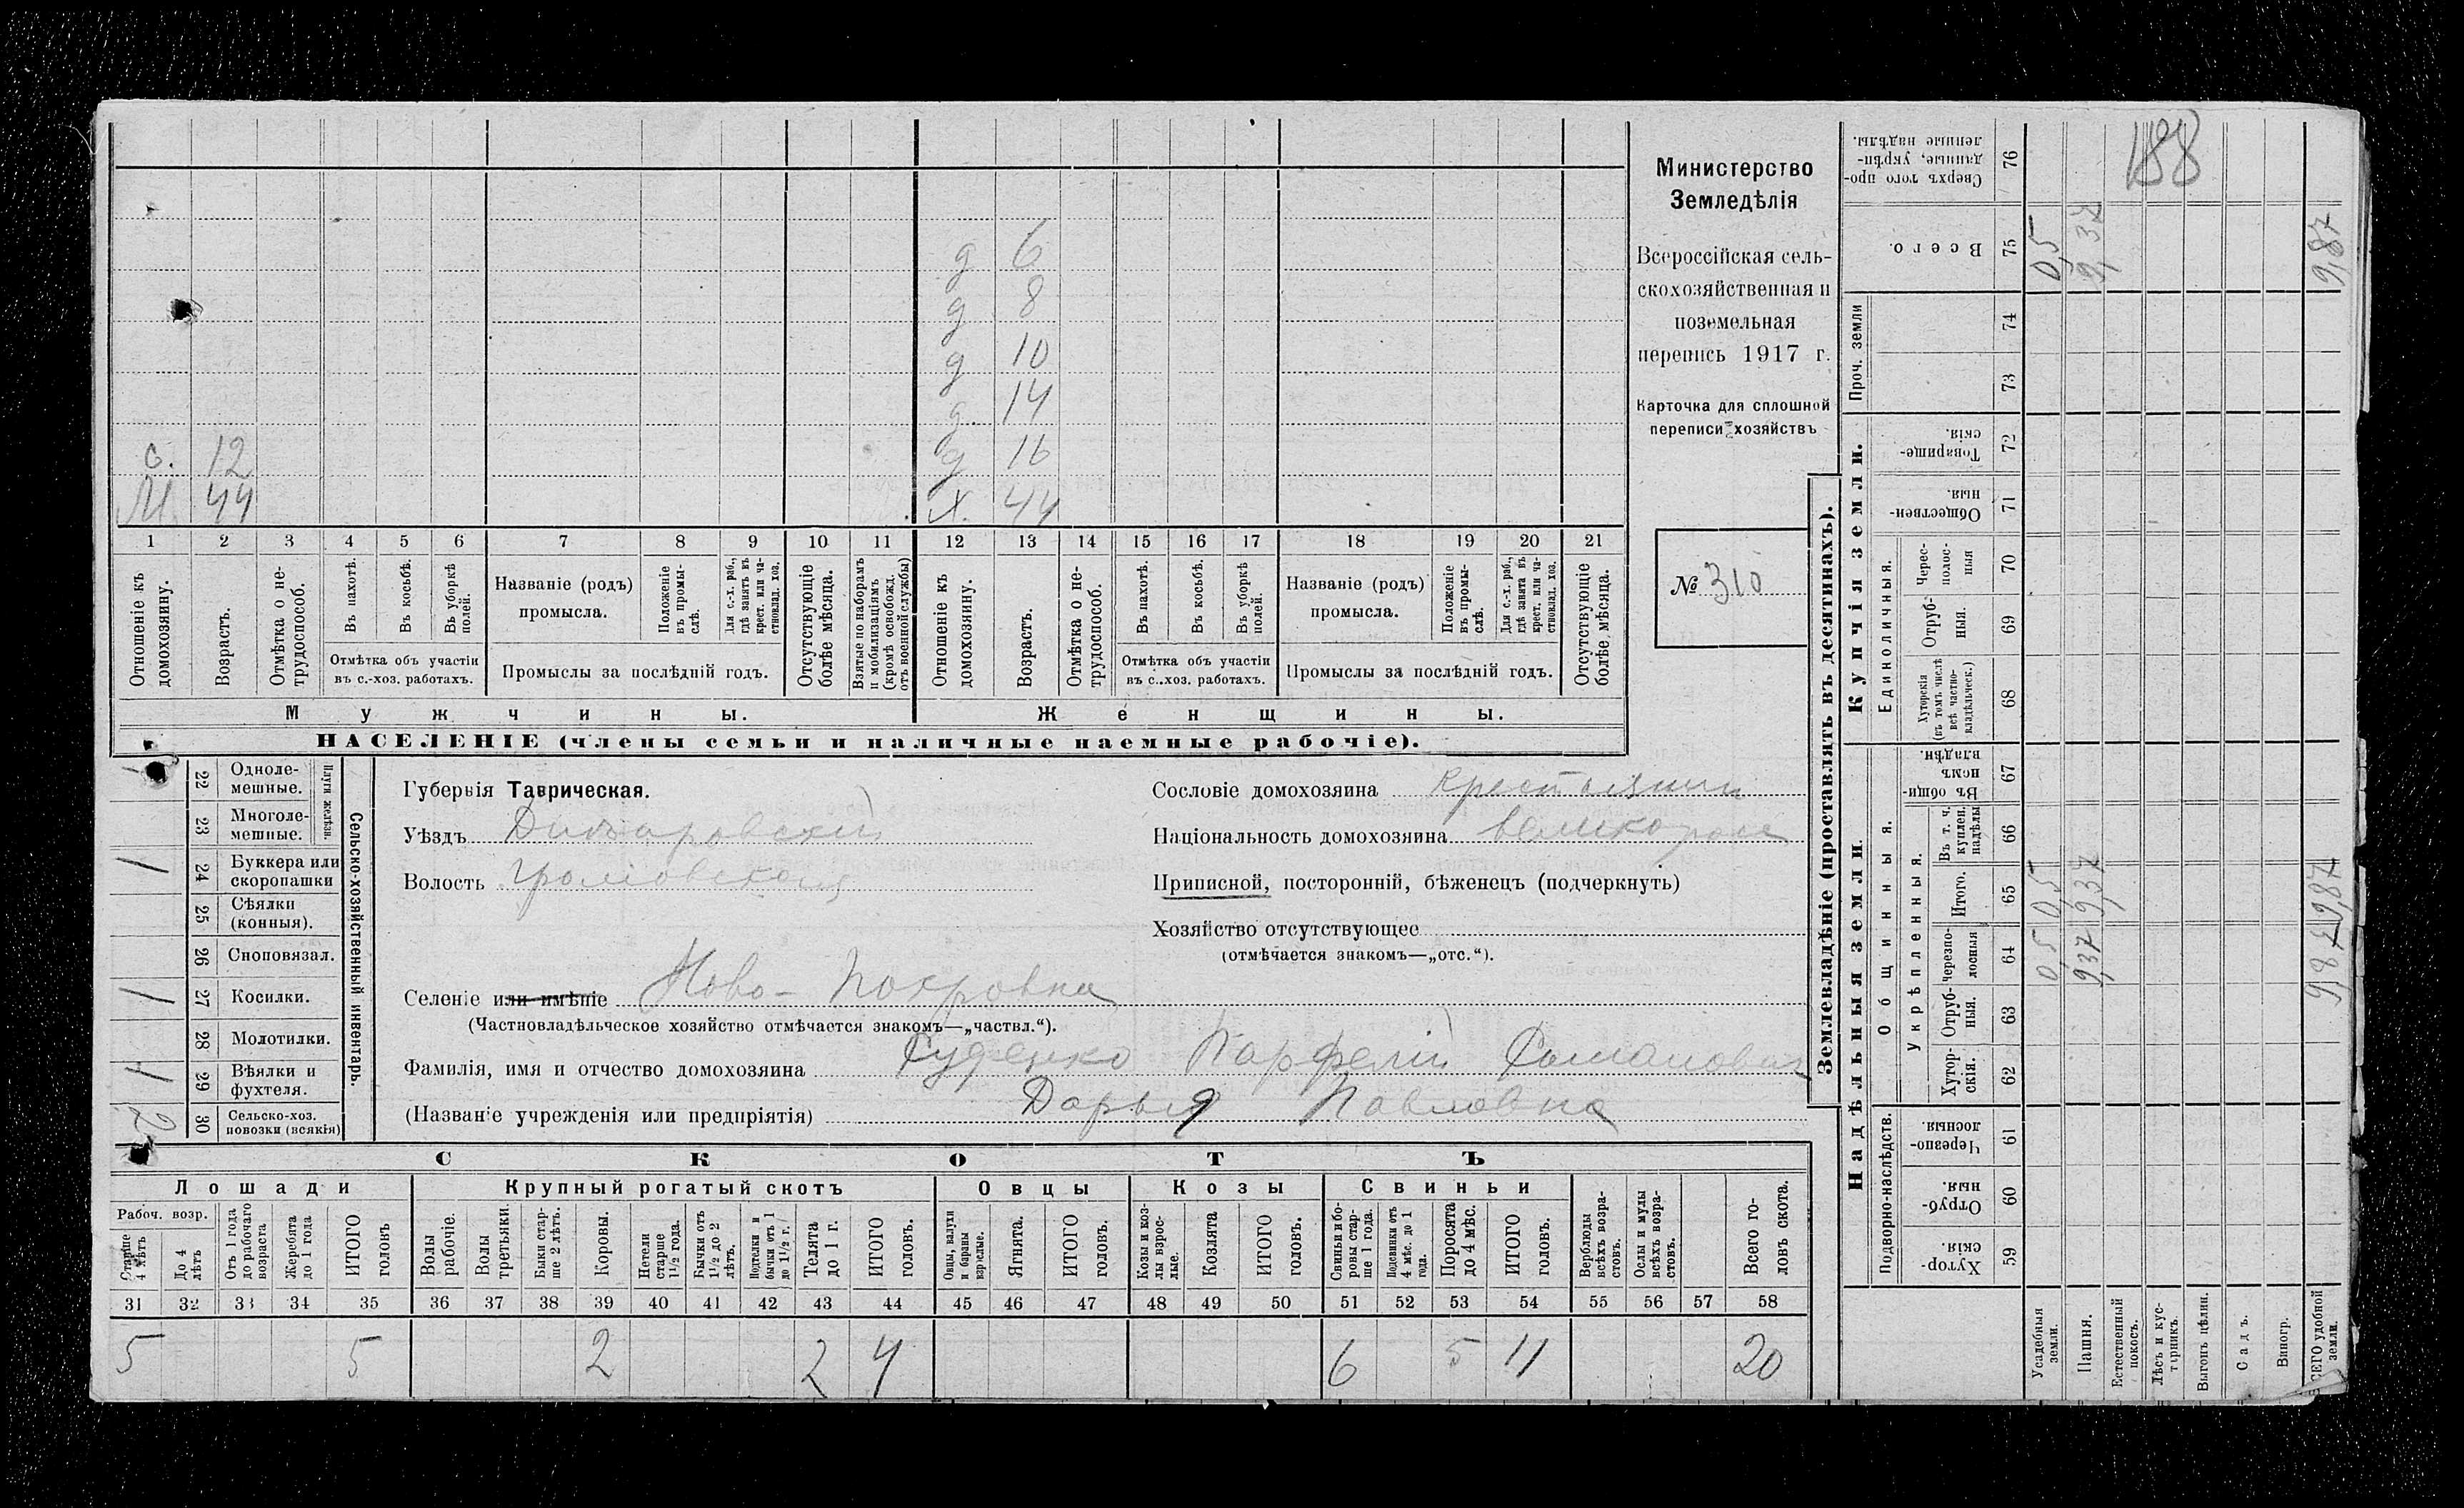 д 6
д 8
д 10
д. 14
с. 12 д 16
М. 44 х. 44
1 2 3 4 5 6 7 8 9 10 11 12 13 14 15 16 17 18 19 20 21
Отношеніе къ домохозяину.
Возрастъ.
Отмѣтка о не-
трудоспособ.
Въ пахотѣ.
Въ косьбѣ.
Въ уборкѣ
полей.
Отмѣтка объ участіи
въ с.-хоз. работахъ.
Названіе (родъ)
промысла.
Положеніе
въ промы-
слѣ.
Для с.-х. раб.,
гдѣ занятъ въ
крест. или ча-
стновлад. хоз.
Промыслы за послѣдній годъ.
Отсутствующіе
болѣе мѣсяца.
Взятые по наборамъ
и мобилизаціямъ
(кромѣ освобожд.
отъ военной службы)
Отношеніе къ
домохозяину.
Возрастъ.
Отмѣтка о не-
трудоспособ.
Въ пахотѣ.
Въ косьбѣ.
Въ уборкѣ
полей.
Отмѣтка объ участіи
въ с..хоз. работахъ.
Названіе (родъ)
промысла.
Положеніе
въ промы-
слѣ.
Для с.-х. раб.,
гдѣ занята въ
крест. или ча-
стновлад. хоз.
Промыслы за послѣдній годъ.
Отсутствующіе
болѣе мѣсяца.
Мужчины.
Женщины.
НАСЕЛЕНІЕ (члены семьи и наличные наемные рабочіе).
Министерство
Земледѣлія
Всероссійская сель-
скохозяйственная и
поземельная
перепись 1917 г.
Карточка для сплошной
переписи хозяйствъ
№ 310
Сельско-хозяйственный инвентарь.
Плуги желѣзн.
22 Одноле-
мешные.
23 Многоле-
мешные.
1 24 Буккера или
скоропашки
25 Сѣялки
(конныя).
26 Сноповязал.
1 27 Косилки.
28 Молотилки.
1 29 Вѣялки и
фухтеля.
2 30 Сельско-хоз.
повозки (всякія)
Губернія Таврическая.
Уѣздъ
Волость Громовская
Селеніе или имѣніе Ново-Покровка
(Частновладѣльческое хозяйство отмѣчается знакомъ—„частвл.“).
Фамилія, имя и отчество домохозяина
(Названіе учрежденія или предпріятія) Дарья Павловна
Сословіе домохозяина крестьянин
Національность домохозяина великоросс
Приписной, посторонній, бѣженецъ (подчеркнуть)
Хозяйство отсутствующее
(отмѣчается знакомъ—„отс.“).
СКОТЪ
Лошади
Крупный рогатый скотъ
Овцы
Козы
Свиньи
Рабоч. возр.
Старше
4 лѣтъ
До 4
лѣтъ
Отъ 1 года
до рабочаго
возраста
Жеребята
до 1 года
ИТОГО
головъ
Волы
рабочіе.
Волы
третьяки.
Быки стар-
ше 2 лѣтъ.
Коровы.
Нетели
старше
1½ года.
Бычки отъ
1½ до 2
лѣтъ.
Подтелки и
бычки отъ 1
до 1½ г.
Телята
до 1 г.
ИТОГО
головъ.
Овцы, валухи
и бараны
взрослые.
Ягнята.
ИТОГО
головъ.
Козы и коз-
лы взрос-
лые.
Козлята
ИТОГО
головъ.
Свиньи и бо-
ровы стар-
ше 1 года.
Подсвинки отъ
4 мѣс. до 1
года.
Поросята
до 4 мѣс.
ИТОГО
головъ.
Верблюды
всѣхъ возра-
стовъ.
Ослы и мулы
всѣхъ возра-
стовъ.
Всего го-
ловъ скота.
31 32 33 34 35 36 37 38 39 40 41 42 43 44 45 46 47 48 49 50 51 52 53 54 55 56 57 58
5 5 2 2 4 6 5 11 20
Землевладѣніе (проставлять въ десятинахъ).
Надѣльныя земли.
Купчія земли.
Проч. земли
Подворно-наслѣдств.
Общинныя.
Укрѣпленныя.
Единоличныя.
Хутор-
скія. 59
Отруб-
ныя. 60
Черезпо-
лосныя 61
Хутор-
скія. 62
Отруб-
ныя. 63
Черезпо-
лосныя 64 0,5 9,37 9,87
Итого. 65 0,5 9,37 9,87
Въ т. ч.
куплен.
надѣлы 66
Въ общи-
номъ
владѣн. 67
Хуторскія
(въ томъ числѣ
всѣ частно-
владѣльческ.) 68
Отруб-
ныя. 69
Черес-
полос-
ныя 70
Обществен-
ныя. 71
Товарище-
скія. 72
73
74
Всего. 75 0,5 9,37 9,87
Сверхъ того про-
данные, укрѣп-
ленные надѣлы. 76
188
Усадебныя
земли.
Пашня.
Естественный
покосъ.
Лѣсъ и кус-
тарникъ.
Выгонъ цѣлин.
Садъ.
Виногр.
ВСЕГО удобной
земли.